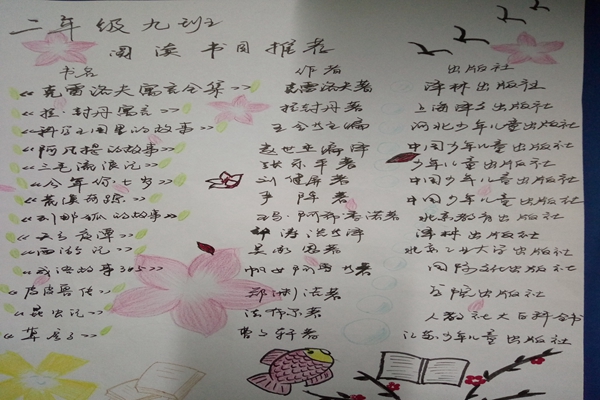 二年级九班
阅读书目推荐
书名 作者 出版社
《克雷洛夫寓言全集》 克雷洛夫著 译林出版社
《拉·封丹寓言》 拉封丹著 上海译文出版社
《科学王国里的故事》 王会 主编 河北少年儿童出版社
《阿凡提的故事》 赵世杰编译 中国少年儿童出版社
《三毛流浪记》 张乐平著 少年儿童出版社
《今年你七岁》 刘健屏著 中国少年儿童出版社
《荒漠奇踪》 严阵著 中国少年儿童出版社
《列那狐的故事》 玛·阿希·季诺著 北京教育出版社
译林出版社
《西游记》 吴承恩著 北京工业大学出版社
《成语故事365》 国际文化出版社
《皮皮鲁传》 郑渊洁著 学苑出版社
《昆虫记》 法布尔著 大百科全书
《草房子》 曹文轩著 江苏少年儿童出版社